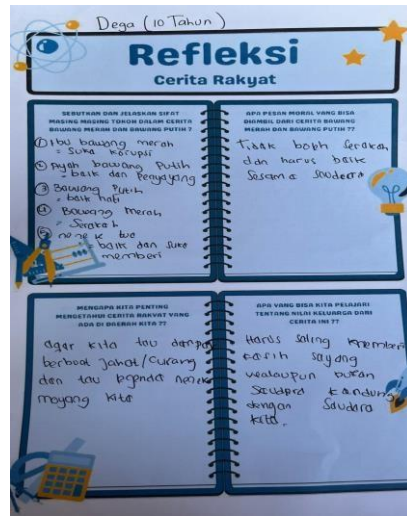 Dega (10 Tahun)
Refleksi
Cerita Rakyat
SEBUTKAN DAN JELASKAN SIFAT
MASING MASING TOKOH DALAM CERITA
BAWANG MERAH DAN BAWANG PUTIH ?
① Ibu bawang merah
= Suka korupsi
② Ayah bawang Putih
= baik dan Penyayang
③ Bawang Putih
= baik hati
④ Bawang merah
= Serakah
⑤ nenek tua
= baik dan suka
memberi
APA PESAN MORAL YANG BISA
DIAMBIL DARI CERITA BAWANG
MERAH DAN BAWANG PUTIH ??
Tidak boleh Serakah
dan harus baik
Sesama Saudara
MENGAPA KITA PENTING
MENGETAHUI CERITA RAKYAT YANG
ADA DI DAERAH KITA ??
agar kita tau dampak
berbuat Jahat/Curang
dan tau nenek
moyang kita
APA YANG BISA KITA PELAJARI
TENTANG NILAI KELUARGA DARI
CERITA INI ??
Harus saling memberi
kasih sayang
walaupun bukan
Saudara kandung
dengan Saudara
kita.